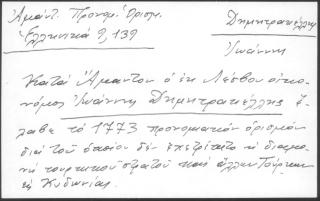 Ἀμαντ. Προνομ. Ὁρισμ.
Ἑλληνικά 9, 139
Δημητρακέλλης
Ἰωάννης
Κατὰ Ἄμαντον ὁ ἐκ Λέσβου οἰκο-
νόμος Ἰωάννης Δημητρακέλλης ἔ-
λαβε τὸ 1773 προνομιακὸν ὁρισμὸν
διὰ τοῦ ὁποίου δὲν ἐπετρέπετο ἡ διαμο-
νὴ τουρκικοῦ στρατοῦ καὶ ἄλλων Τούρκων
εἰς Κυδωνίας.